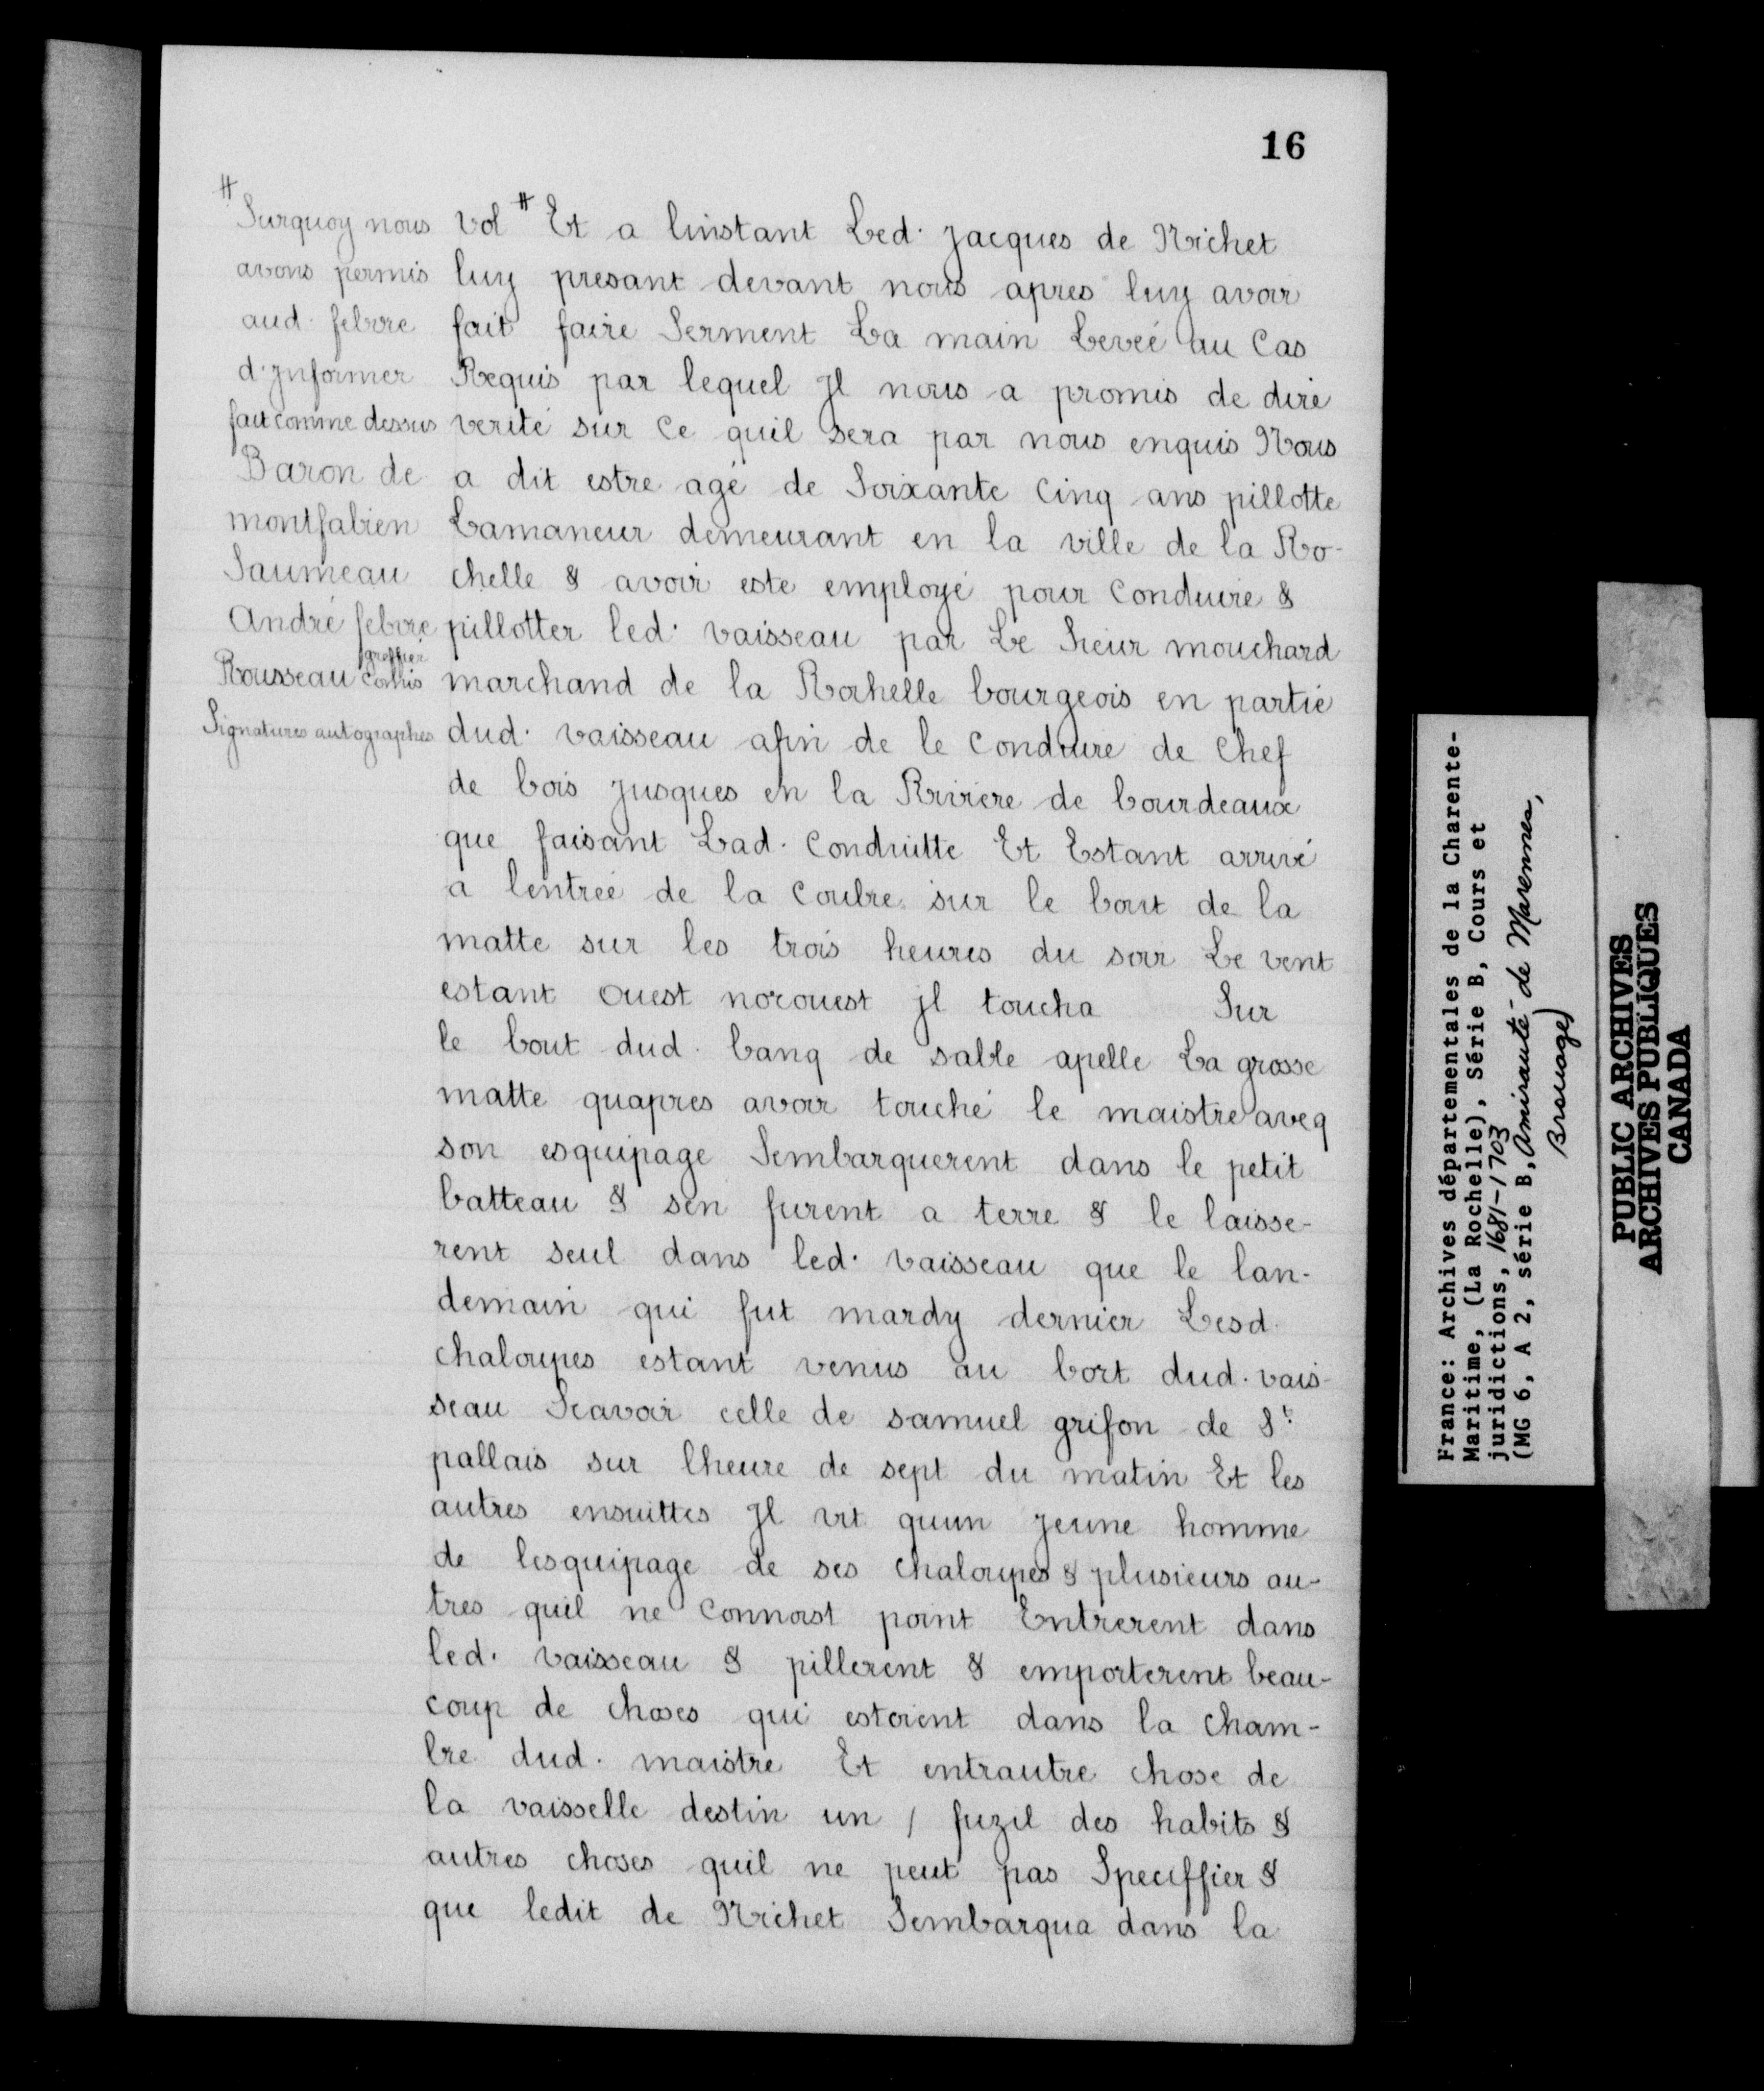 16
# Surquoy nous
avons permis
aud. febvre
d'Jnformer
fait comme dessus
Baron de
montfabien
Saumeau
André febvre
greffier
Rousseau Comis
Signatures autographes
vol # Et a linstant Led. Jacques de Nichet
luy presant devant nous apres luy avoir
fait faire Serment La main Leveé au Cas
Requis par lequel Jl nous a promis de dire
verité sur Ce quil sera par nous enquis Nous
a dit estre agé de Soixante Cinq ans pillotte
Lamaneur demeurant en la ville de la Ro-
chelle & avoir este employé pour Conduire &
pillotter led. vaisseau par Le Sieur mouchard
marchand de la Rochelle bourgeois en partie
dud. vaisseau afin de le Conduire de Chef
de bois Jusques en la Riviere de bourdeaux
que faisant Lad. Conduitte Et Estant arrivé
a lentreé de la Coubre sur le bout de la
matte sur les trois heures du soir Le vent
estant Ouest norouest Jl toucha Sur
le bout dud. banq de sable apelle La grosse
matte quapres avoir touché le maistre aveq
son esquipage Sembarquerent dans le petit
batteau & sen furent a terre & le laisse-
rent seul dans led. vaisseau que le lan-
demain qui fut mardy dernier Lesd.
chaloupes estant venus au bort dud. vais-
seau Scavoir celle de samuel grifon de St.
pallais sur lheure de sept du matin Et les
autres ensuittes Jl vit quun Jeune homme
de lesquipage de ses chaloupes & plusieurs au-
tres quil ne Connoist point Entrerent dans
led. vaisseau & pillerent & emporterent beau-
coup de choses qui estoient dans la cham-
bre dud. maistre Et entrautre chose de
la vaisselle destin un / fuzil des habits &
autres choses quil ne peut pas Speciffier &
que ledit de Nichet Sembarqua dans la
France: Archives départementales de la Charente-
Maritime, (La Rochelle), Série B, Cours et
juridictions, 1681-1703
(MG 6, A 2, série B, Amirauté de Marennes,
Brouage)
PUBLIC ARCHIVES
ARCHIVES PUBLIQUES
CANADA